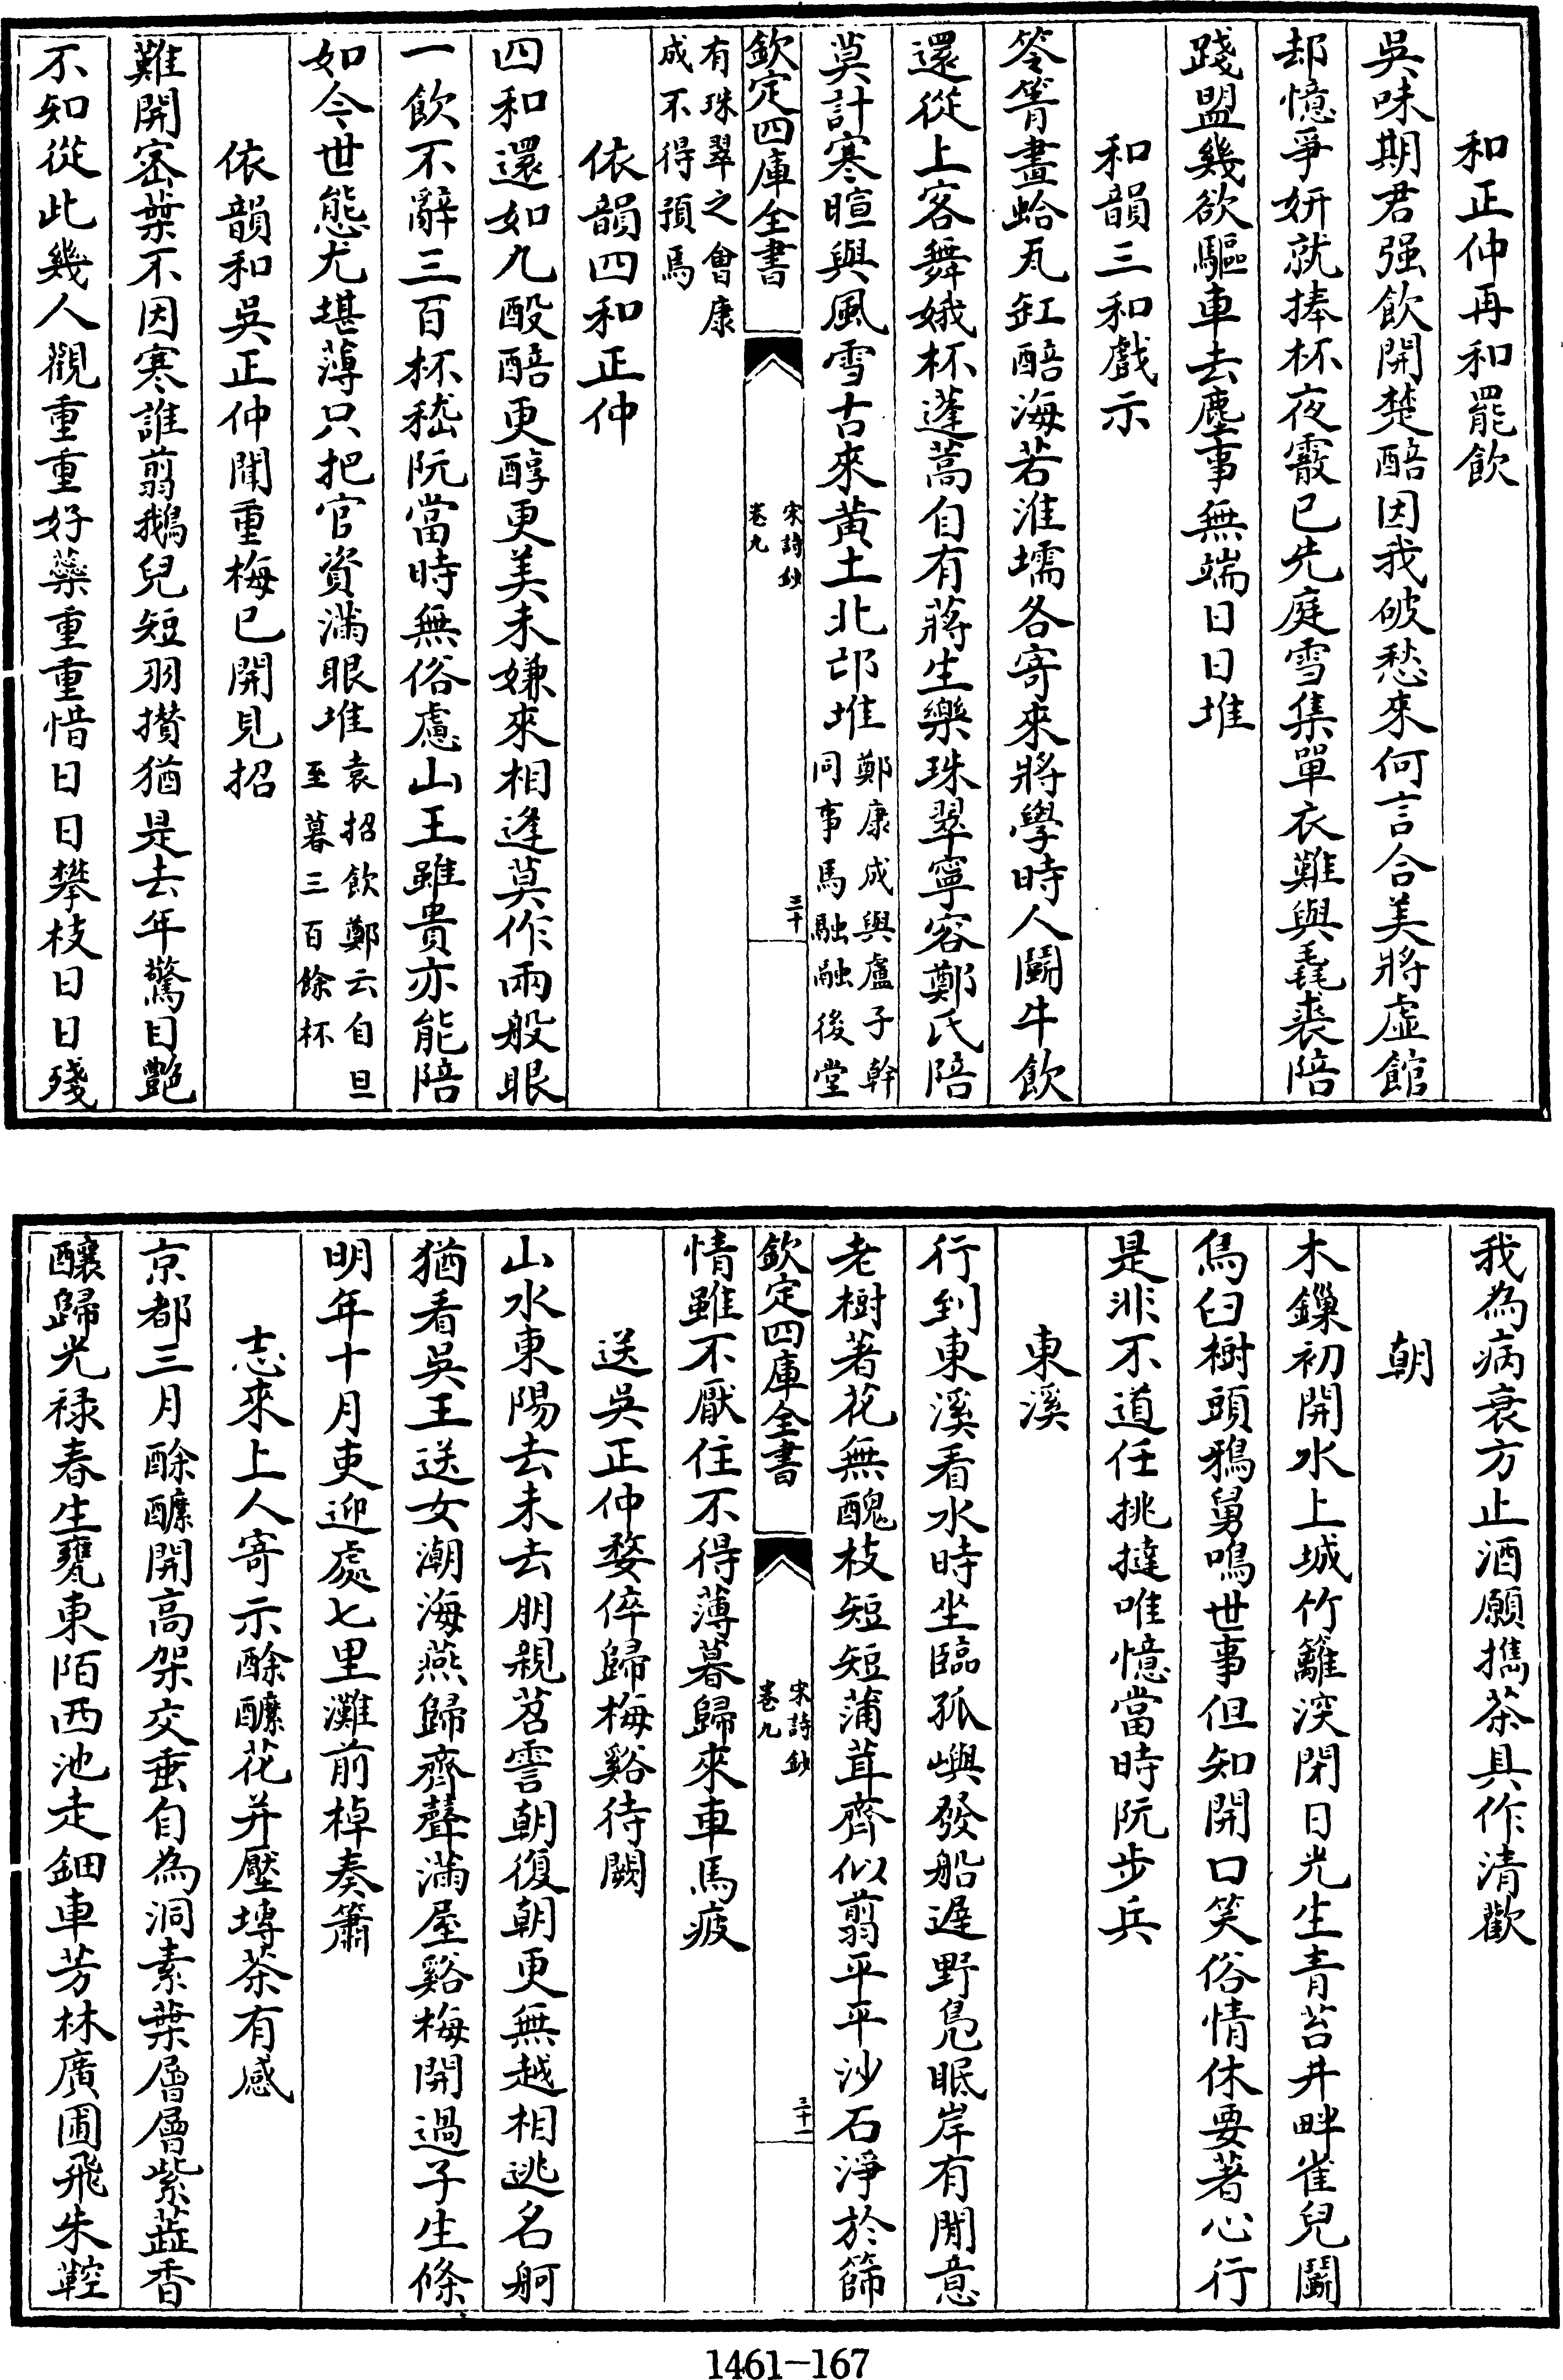 和正仲再和罷飲
吳味期君强飲開楚醅因我破愁來何言合美將虛館
却憶爭妍就捧杯夜霰已先庭雪集單衣難與毳裘陪
踐盟幾欲驅車去塵事無端日日堆
和韻三和戲示
笭箵畫蛤瓦缸醅海若淮壖各寄來將學時人鬭牛飲
還從上客舞娥杯蓬蒿自有蔣生樂珠翠寧容鄭氏陪
莫計寒暄與風雪古來黃土北邙堆鄭康成與盧子幹
同事馬融融後堂
欽定四庫全書
宋詩鈔
卷九
三十
有珠翠之會康
成不得預焉
依韻四和正仲
四和還如九醞醅更醇更美未嫌來相逢莫作兩般眼
一飲不辭三百杯嵇阮當時無俗慮山王雖貴亦能陪
如今世態尤堪薄只把官資滿眼堆袁招飲鄭云自旦
至暮三百餘杯
依韻和吳正仲聞重梅已開見招
難開密葉不因寒誰翦鵝兒短羽攢猶是去年驚目艷
不知從此幾人觀重重好蘂重重惜日日攀枝日日殘
我為病衰方止酒願攜茶具作清歡
朝
木鏁初開水上城竹籬深閉日光生青苔井畔雀兒鬭
烏臼樹頭鴉舅鳴世事但知開口笑俗情休要著心行
是非不道任挑撻唯憶當時阮步兵
東溪
行到東溪看水時坐臨孤嶼發船遲野鳧眠岸有閒意
老樹著花無醜枝短短蒲茸齊似翦平平沙石淨於篩
欽定四庫全書
宋詩鈔
卷九
三十一
情雖不厭住不得薄暮歸來車馬疲
送吳正仲婺倅歸梅谿待闕
山水東陽去未去朋親苕霅朝復朝更無越相逃名舸
猶看吳王送女潮海燕歸齊聲滿屋谿梅開過子生條
明年十月吏迎處七里灘前棹奏簫
志來上人寄示酴醾花并壓塼茶有感
京都三月酴醾開高架交垂自為洞素葉層層紫蘂香
釀歸光祿春生甕東陌西池走鈿車芳林廣圃飛朱鞚
1461-167